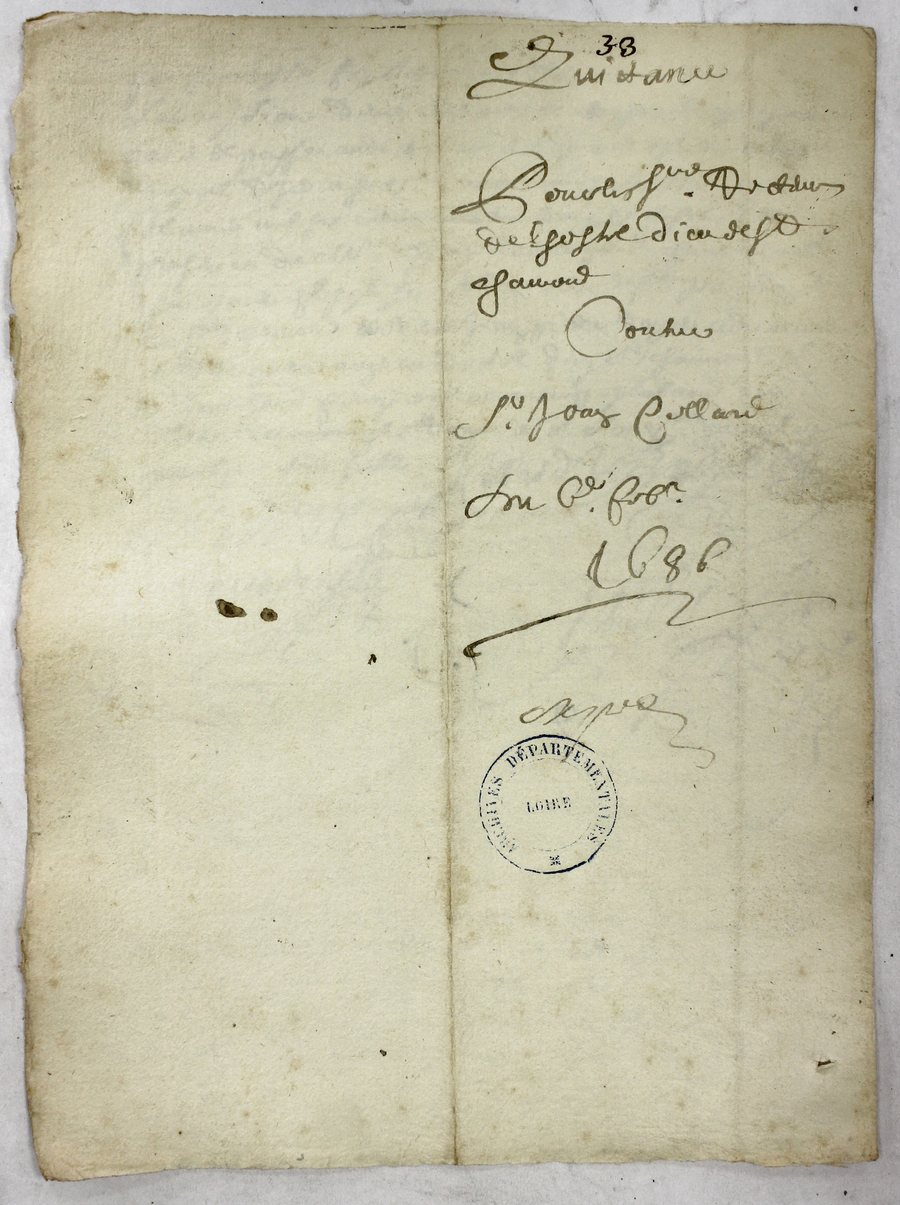 38
Quictance
Pour les srs Recteurs
de lhostel dieu de St
chamond
Contre
Sr. Jean Collard
Du 6e. febr.
1686
ARCHIVES DÉPARTEMENTALES
LOIRE